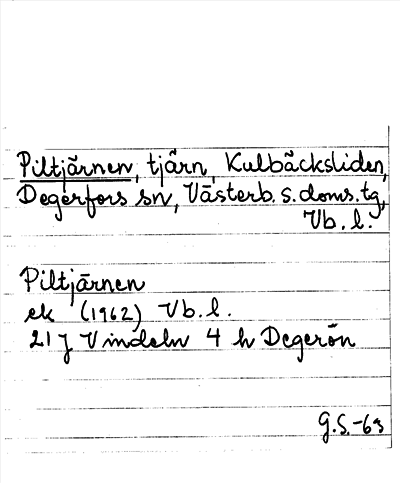 Piltjärnen, tjärn, Kulbäcksliden,
Degerfors sn, Västerb. s. doms. tg,
Vb. l.
Piltjärnen
ek (1962) Vb. l.
21 J Vindeln 4 h Degerön
G.S.-63